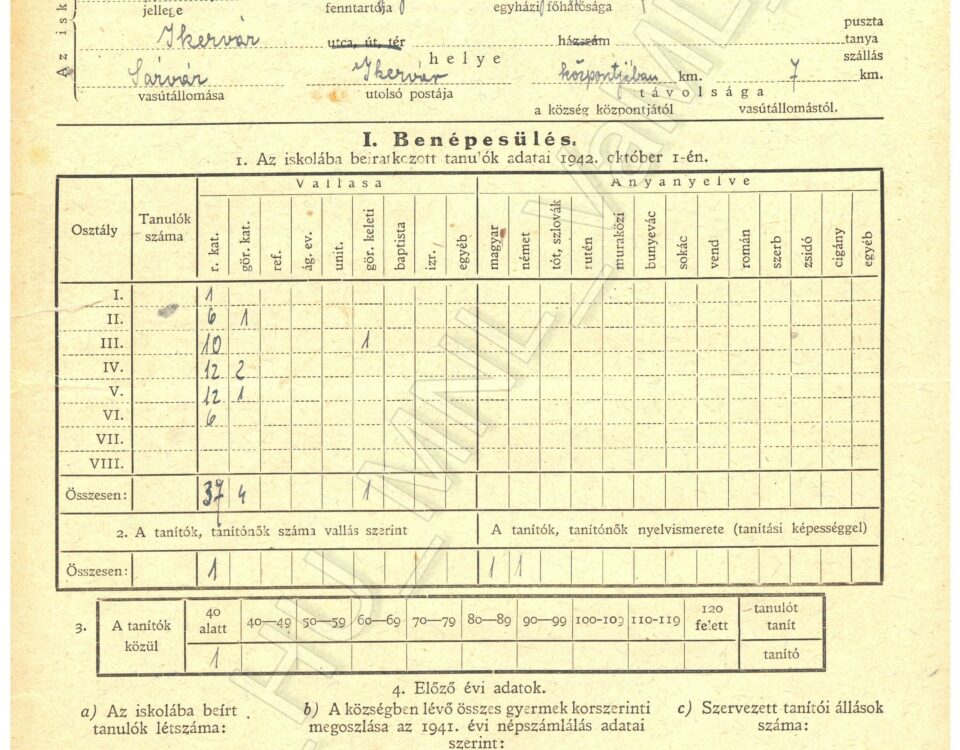 jellege fenntartója egyházi főhatósága
Az isk
puszta
Ikervár utca, út, tér házszám tanya
helye szállás
Sárvár Ikervár központjában km. 7 km.
vasútállomása utolsó postája távolsága
a község központjától vasútállomástól.
I. Benépesülés.
1. Az iskolába beiratkozott tanulók adatai 1942. október 1-én.
Vallása Anyanyelve
Osztály Tanulók száma r. kat. gör. kat. ref. ág. ev. unit. gör. keleti baptista izr. egyéb magyar német tót, szlovák rutén muraközi bunyevác sokác vend román szerb zsidó cigány egyéb
I. 1
II. 6 1
III. 10 1
IV. 12 2
V. 12 1
VI. 6
VII.
VIII.
Összesen: 37 4 1
2. A tanítók, tanítónők száma vallás szerint A tanítók, tanítónők nyelvismerete (tanítási képességgel)
Összesen: 1 1 1
3. A tanítók közül 40 alatt 40—49 50—59 60—69 70—79 80—89 90—99 100-109 110-119 120 felett tanulót tanít
1 tanító
4. Előző évi adatok.
a) Az iskolába beírt b) A községben lévő összes gyermek korszerinti c) Szervezett tanítói állások
tanulók létszáma: megoszlása az 1941. évi népszámlálás adatai száma:
szerint:
HU_MNL_VaML